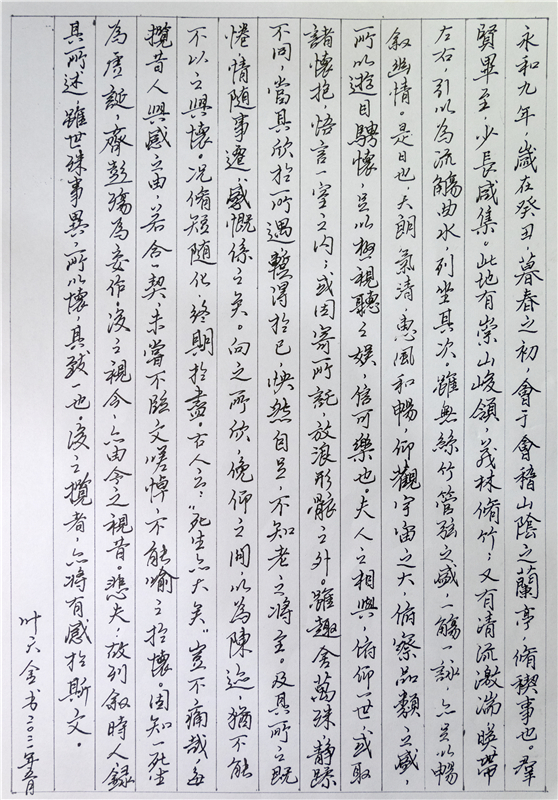 永和九年，歲在癸丑，暮春之初，會于會稽山陰之蘭亭，脩禊事也。羣
賢畢至，少長咸集。此地有崇山峻領，茂林脩竹；又有清流激湍，暎帶
左右，引以為流觴曲水，列坐其次。雖無絲竹管弦之盛，一觴一詠，亦足以暢
敘幽情。是日也，天朗氣清，惠風和暢，仰觀宇宙之大，俯察品類之盛，
所以遊目騁懷，足以極視聽之娛，信可樂也。夫人之相與，俯仰一世，或取
諸懷抱，悟言一室之內；或因寄所託，放浪形骸之外。雖趣舍萬殊，靜躁
不同，當其欣於所遇，暫得於己，快然自足，不知老之將至。及其所之既
惓，情隨事遷，感慨係之矣。向之所欣，俛仰之間，以為陳迹，猶不能
不以之興懷。況脩短隨化，終期於盡。古人云：“死生亦大矣。”豈不痛哉，每
攬昔人興感之由，若合一契，未嘗不臨文嗟悼，不能喻之於懷。固知一死生
為虛誕，齊彭殤為妄作。後之視今，亦由今之視昔。悲夫，故列敘時人，錄
其所述，雖世殊事異，所以懷，其致一也。後之攬者，亦將有感於斯文。
叶 书二〇二一年五月